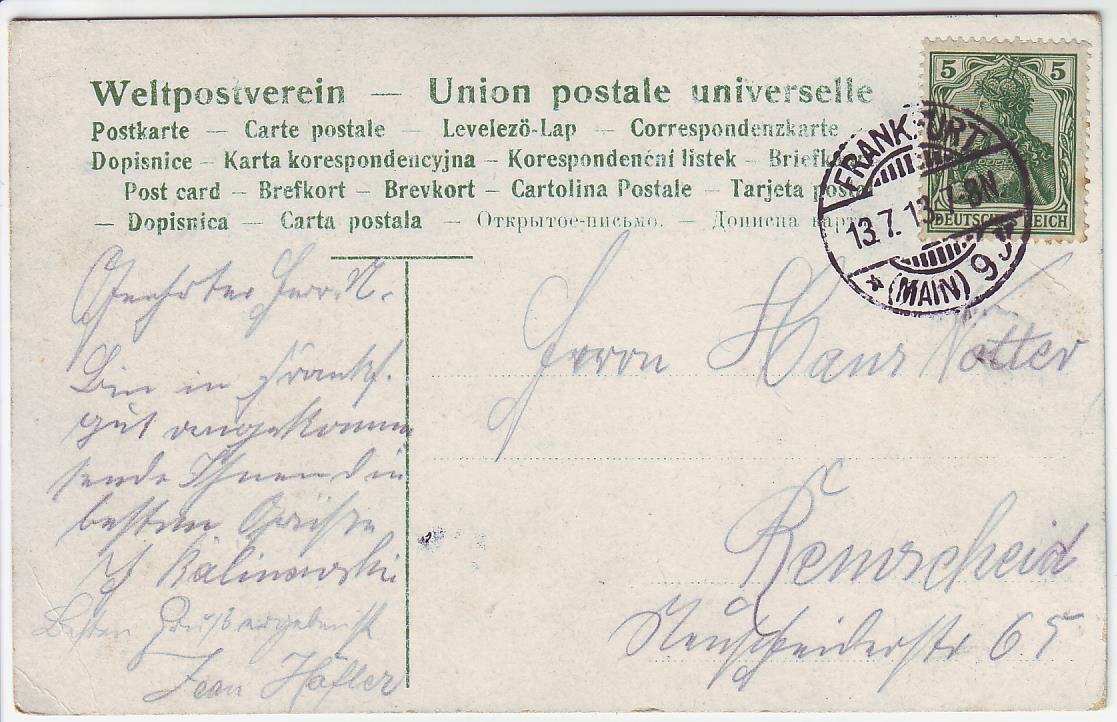 Weltpostverein — Union postale universelle
Postkarte — Carte postale — Levelezö-Lap — Correspondenzkarte
Dopisnice — Karta korespondencyjna — Korespondenční listek — Briefk
Post card — Brefkort — Brevkort — Cartolina Postale — Tarjeta posta
— Dopisnica — Carta postala — Открытое-письмо. — Дописна карт
5 5
DEUTSCHES REICH
FRANKFURT
13.7.13. 7-8N.
* (MAIN) 9
Geehrter Herr N.
Bin in Frankf.
gut angekomm
sende Ihnen die
besten Grüsse
Kalinowski
Besten Gruß ergebenst
Jean Häfler
Herrn Hans Notter
Remscheid
65